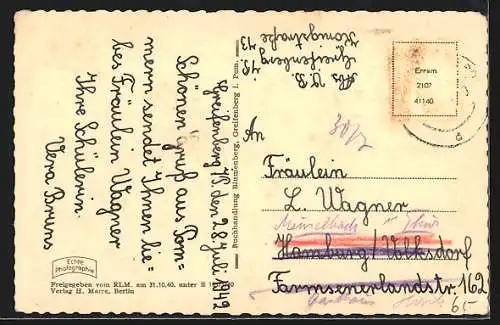 Greifenberg/P. den 28. Juli. 1942
Schönen Gruß aus Pom-
mern sendet Ihnen lie-
bes Fräulein Wagner
Ihre Schülerin.
Vera Bruns
Greifenberg
Königstraße 13
Buchhandlung Blumenberg, Greifenberg i. Pom.
Echte
Photographie
Freigegeben vom RLM. am 31.10.40. unter
Verlag H. Marre, Berlin
Errem
2107
41140
An
Fräulein
L. Wagner
Hamburg/Volksdorf
Farmsenerlandstr. 162
65